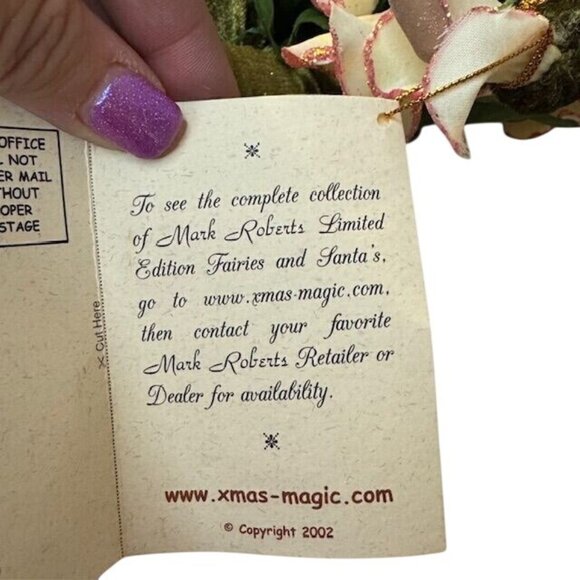 OFFICE
NOT
MAIL
STAGE
To see the complete collection
of Mark Roberts Limited
Edition Fairies and Santa's,
go to www.xmas-magic.com,
then contact your favorite
Mark Roberts Retailer or
Dealer for availability.
Cut Here
www.xmas-magic.com
© Copyright 2002